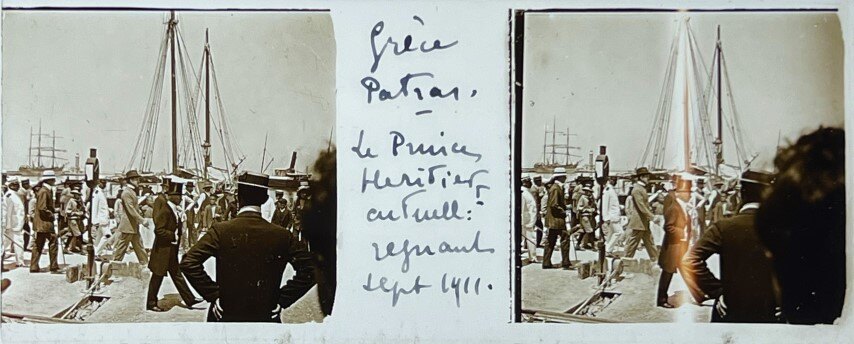 Grèce
Patras.
Le Prince
Heritier
actuell:
regnant
sept 1911.